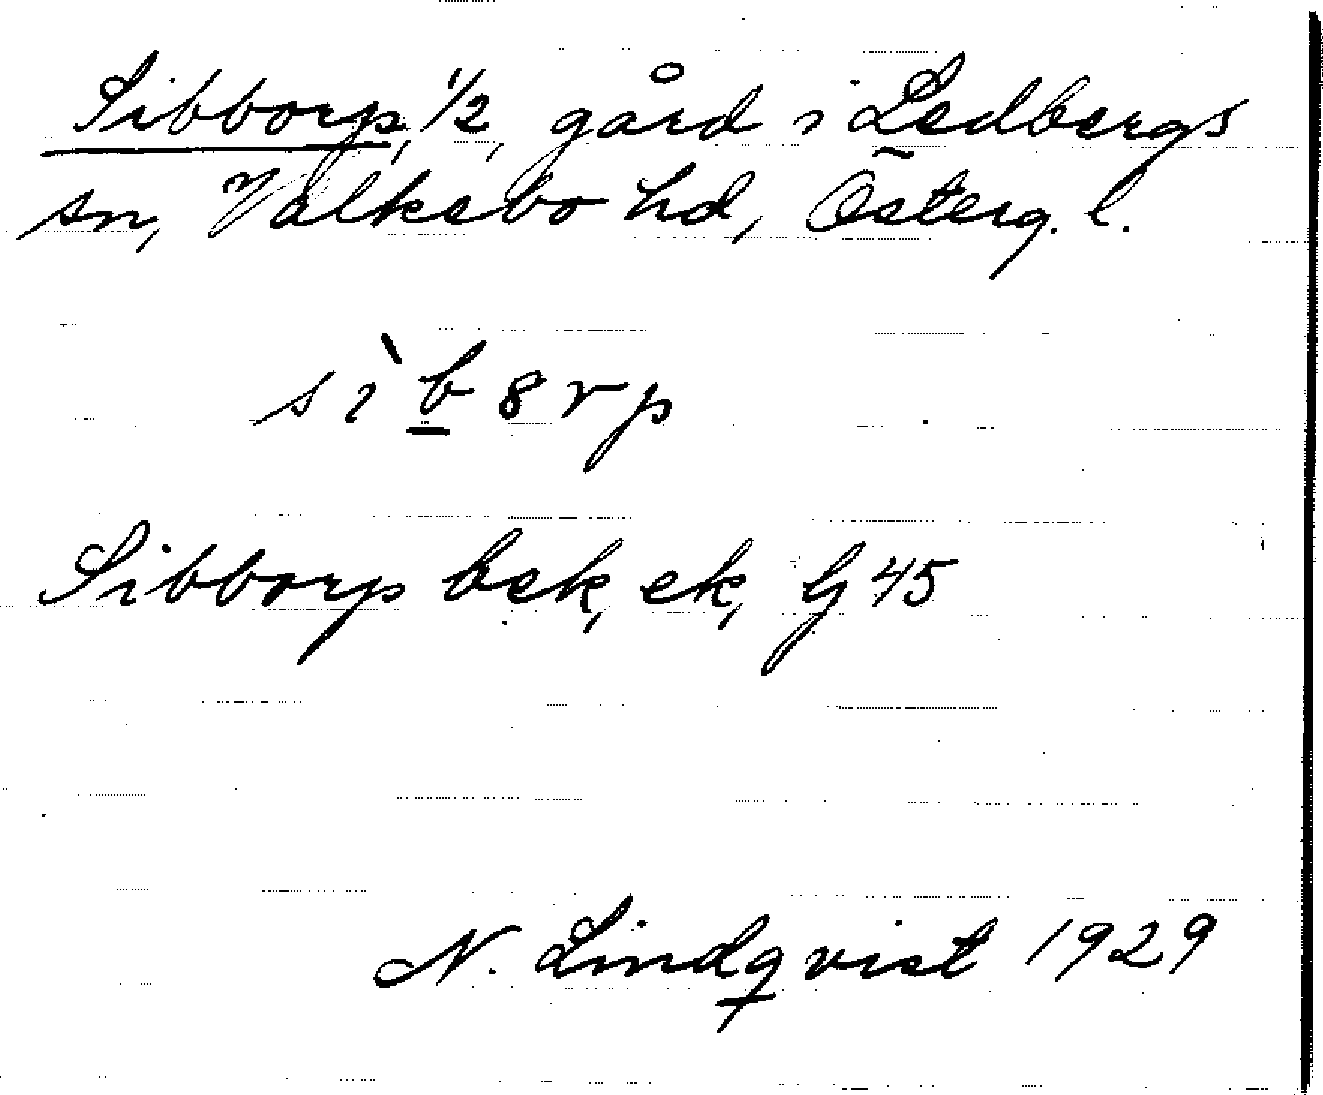 Sibborp, 1/2, gård i Ledbergs
sn, Valkebo hd, Österg. l.
sìb8rp
Sibborp bek, ek, Gj 45
N. Lindqvist 1929